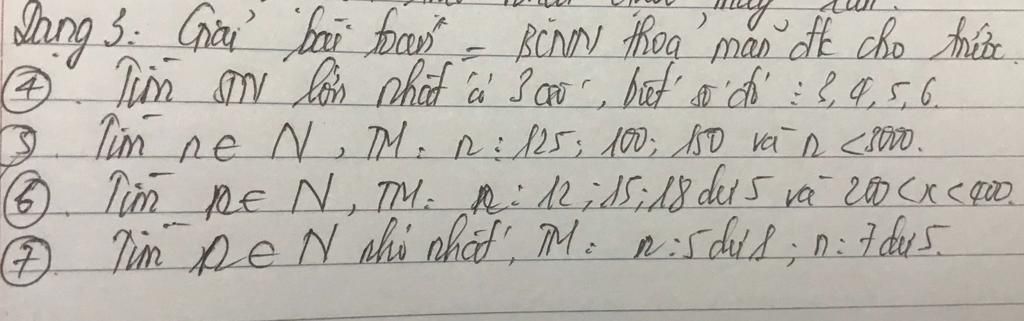 Dạng 3: Giải bài toán = BCNN thoả mãn đk cho trước.
④. Tìm STN lớn nhất có 3 c/s, biết số đó ⋮ 3, 4, 5, 6.
5. Tìm n ∈ N, TM: n ⋮ 125; 100; 150 và n < 3000.
⑥. Tìm n ∈ N, TM: n : 12; 15; 18 dư 5 và 200 < x < 400.
⑦. Tìm n ∈ N nhỏ nhất, TM: n : 5 dư 1; n : 7 dư 5.